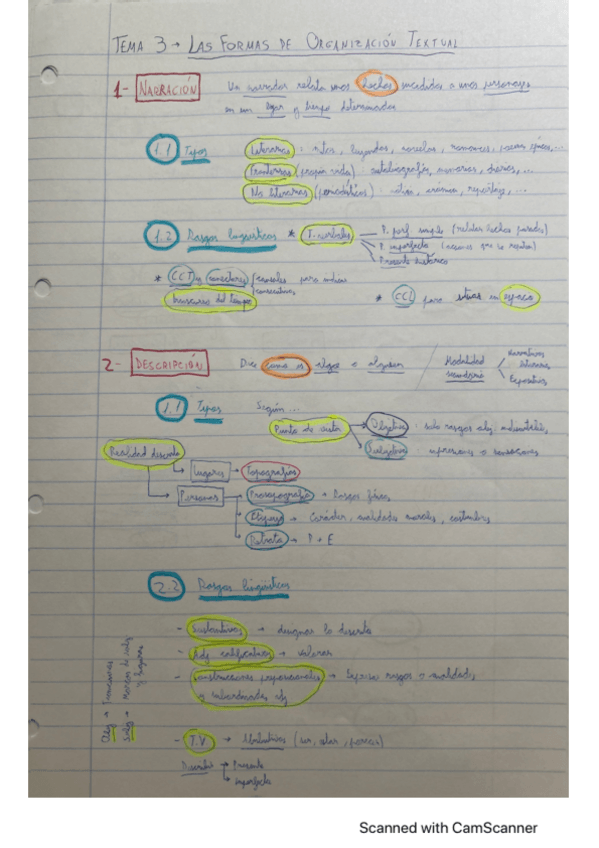 TEMA 3 → LAS FORMAS DE ORGANIZACIÓN TEXTUAL
1- NARRACIÓN Un narrador relata unos hechos sucedidos a unos personajes
en un lugar y tiempo determinados
1.1 Tipos Literarias : mitos, leyendas, novelas, romances, poemas épicos, ...
(propia vida) autobiografía, memorias, diarios, ...
No literarias (periodísticos) : noticia, crónica, reportaje, ...
1.2 Rasgos lingüísticos * T. verbales P. perf. simple (relatar hechos pasados)
P. imperfecto (acciones que se repiten)
Presente histórico
* CCT y conectores temporales para indicar
consecutivos
transcurso del tiempo
* CCL para situar en espacio
2- DESCRIPCIÓN Dice como es algo o alguien
Modalidad
secundaria
Narrativos
literarios
Expositivos
1.1 Tipos Según ...
Punto de vista Objetiva : solo rasgos obj.
Subjetiva : impresiones o sensaciones
Realidad descrita
Lugares → Topografía
Personas → Prosopografía → Rasgos físicos
Etopeya → Carácter, cualidades morales, costumbres
Retrato → P + E
2.2 Rasgos lingüísticos
- Sustantivos → designar lo descrito
- Adj. calificativos → valorar
- Construcciones preposicionales → Expresar rasgos o cualidades
y subordinadas adj
- T.V → Atributivos (ser, estar, parecer)
Describir → Presente
→ Imperfecto
Scanned with CamScanner